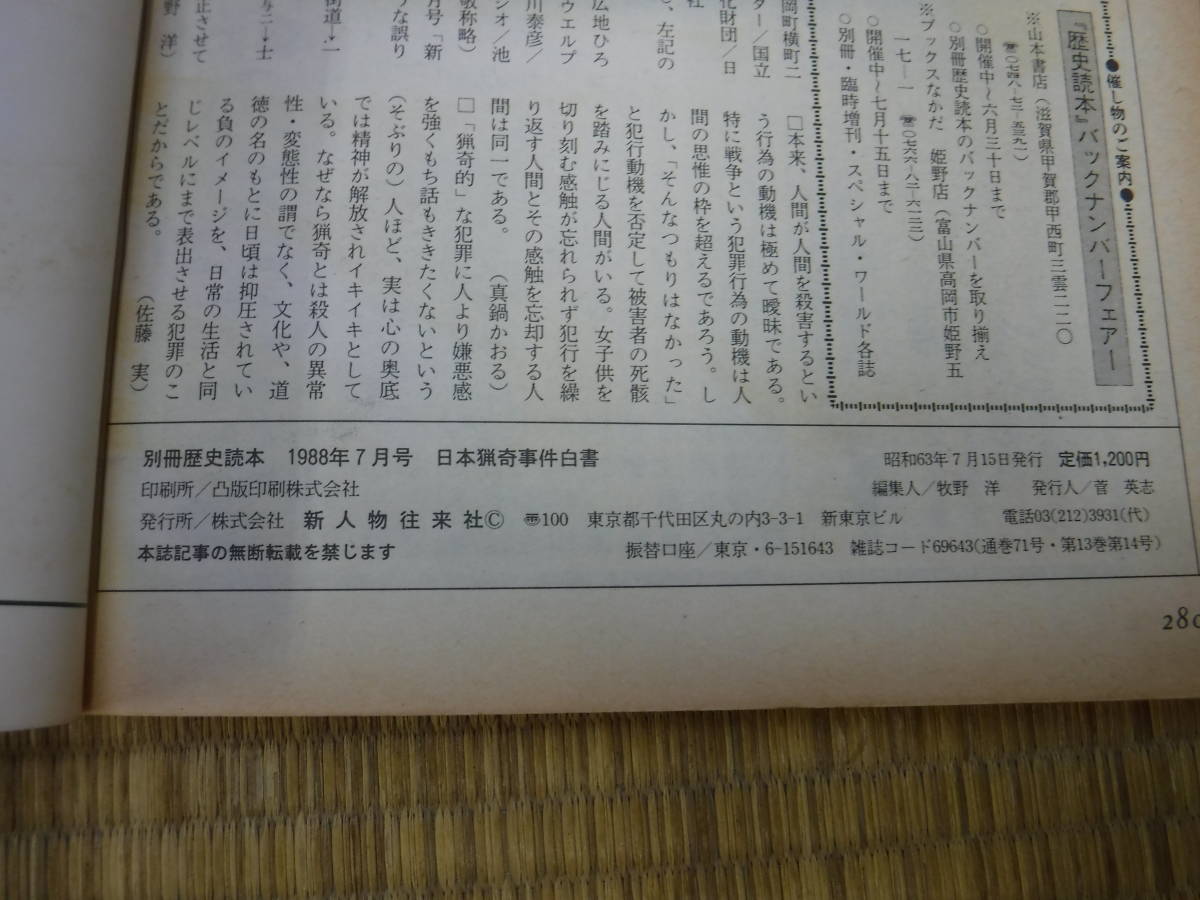 ●催し物のご案内●
『歴史読本』バックナンバーフェアー
※山本書店(滋賀県甲賀郡甲西町三雲二二〇
☎〇七四八-七二-五三九一)
○開催中~六月三十日まで
○別冊歴史読本のバックナンバーを取り揃え
※ブックスなかだ 姫野店(富山県高岡市姫野五
一七-一 ☎〇七六六-八二-六一三三)
○開催中~七月十五日まで
○別冊・臨時増刊・スペシャル・ワールド各誌
岡町横町二
ター/国立
化財団/日
社
、左記の
広地ひろ
ウエルプ
川泰彦/
ジオ/池
敬称略)
月号「新
うな誤り
街道→一
与二→士
止させて
野 洋)
□本来、人間が人間を殺害するとい
う行為の動機は極めて曖昧である。
特に戦争という犯罪行為の動機は人
間の思惟の枠を超えるであろう。し
かし、「そんなつもりはなかった」
と犯行動機を否定して被害者の死骸
を踏みにじる人間がいる。女子供を
切り刻む感触が忘れられず犯行を繰
り返す人間とその感触を忘却する人
間は同一である。 (真鍋かおる)
□「猟奇的」な犯罪に人より嫌悪感
を強くもち話もききたくないという
(そぶりの)人ほど、実は心の奥底
では精神が解放されイキイキとして
いる。なぜなら猟奇とは殺人の異常
性・変態性の謂でなく、文化や、道
徳の名のもとに日頃は抑圧されてい
る負のイメージを、日常の生活と同
じレベルにまで表出させる犯罪のこ
とだからである。 (佐藤 実)
別冊歴史読本 1988年7月号 日本猟奇事件白書
昭和63年7月15日発行 定価1,200円
印刷所/凸版印刷株式会社
編集人/牧野 洋 発行人/菅 英志
発行所/株式会社 新人物往来社Ⓒ 〠100 東京都千代田区丸の内3-3-1 新東京ビル 電話03(212)3931(代)
本誌記事の無断転載を禁じます
振替口座/東京・6-151643 雑誌コード69643(通巻71号・第13巻第14号)
280